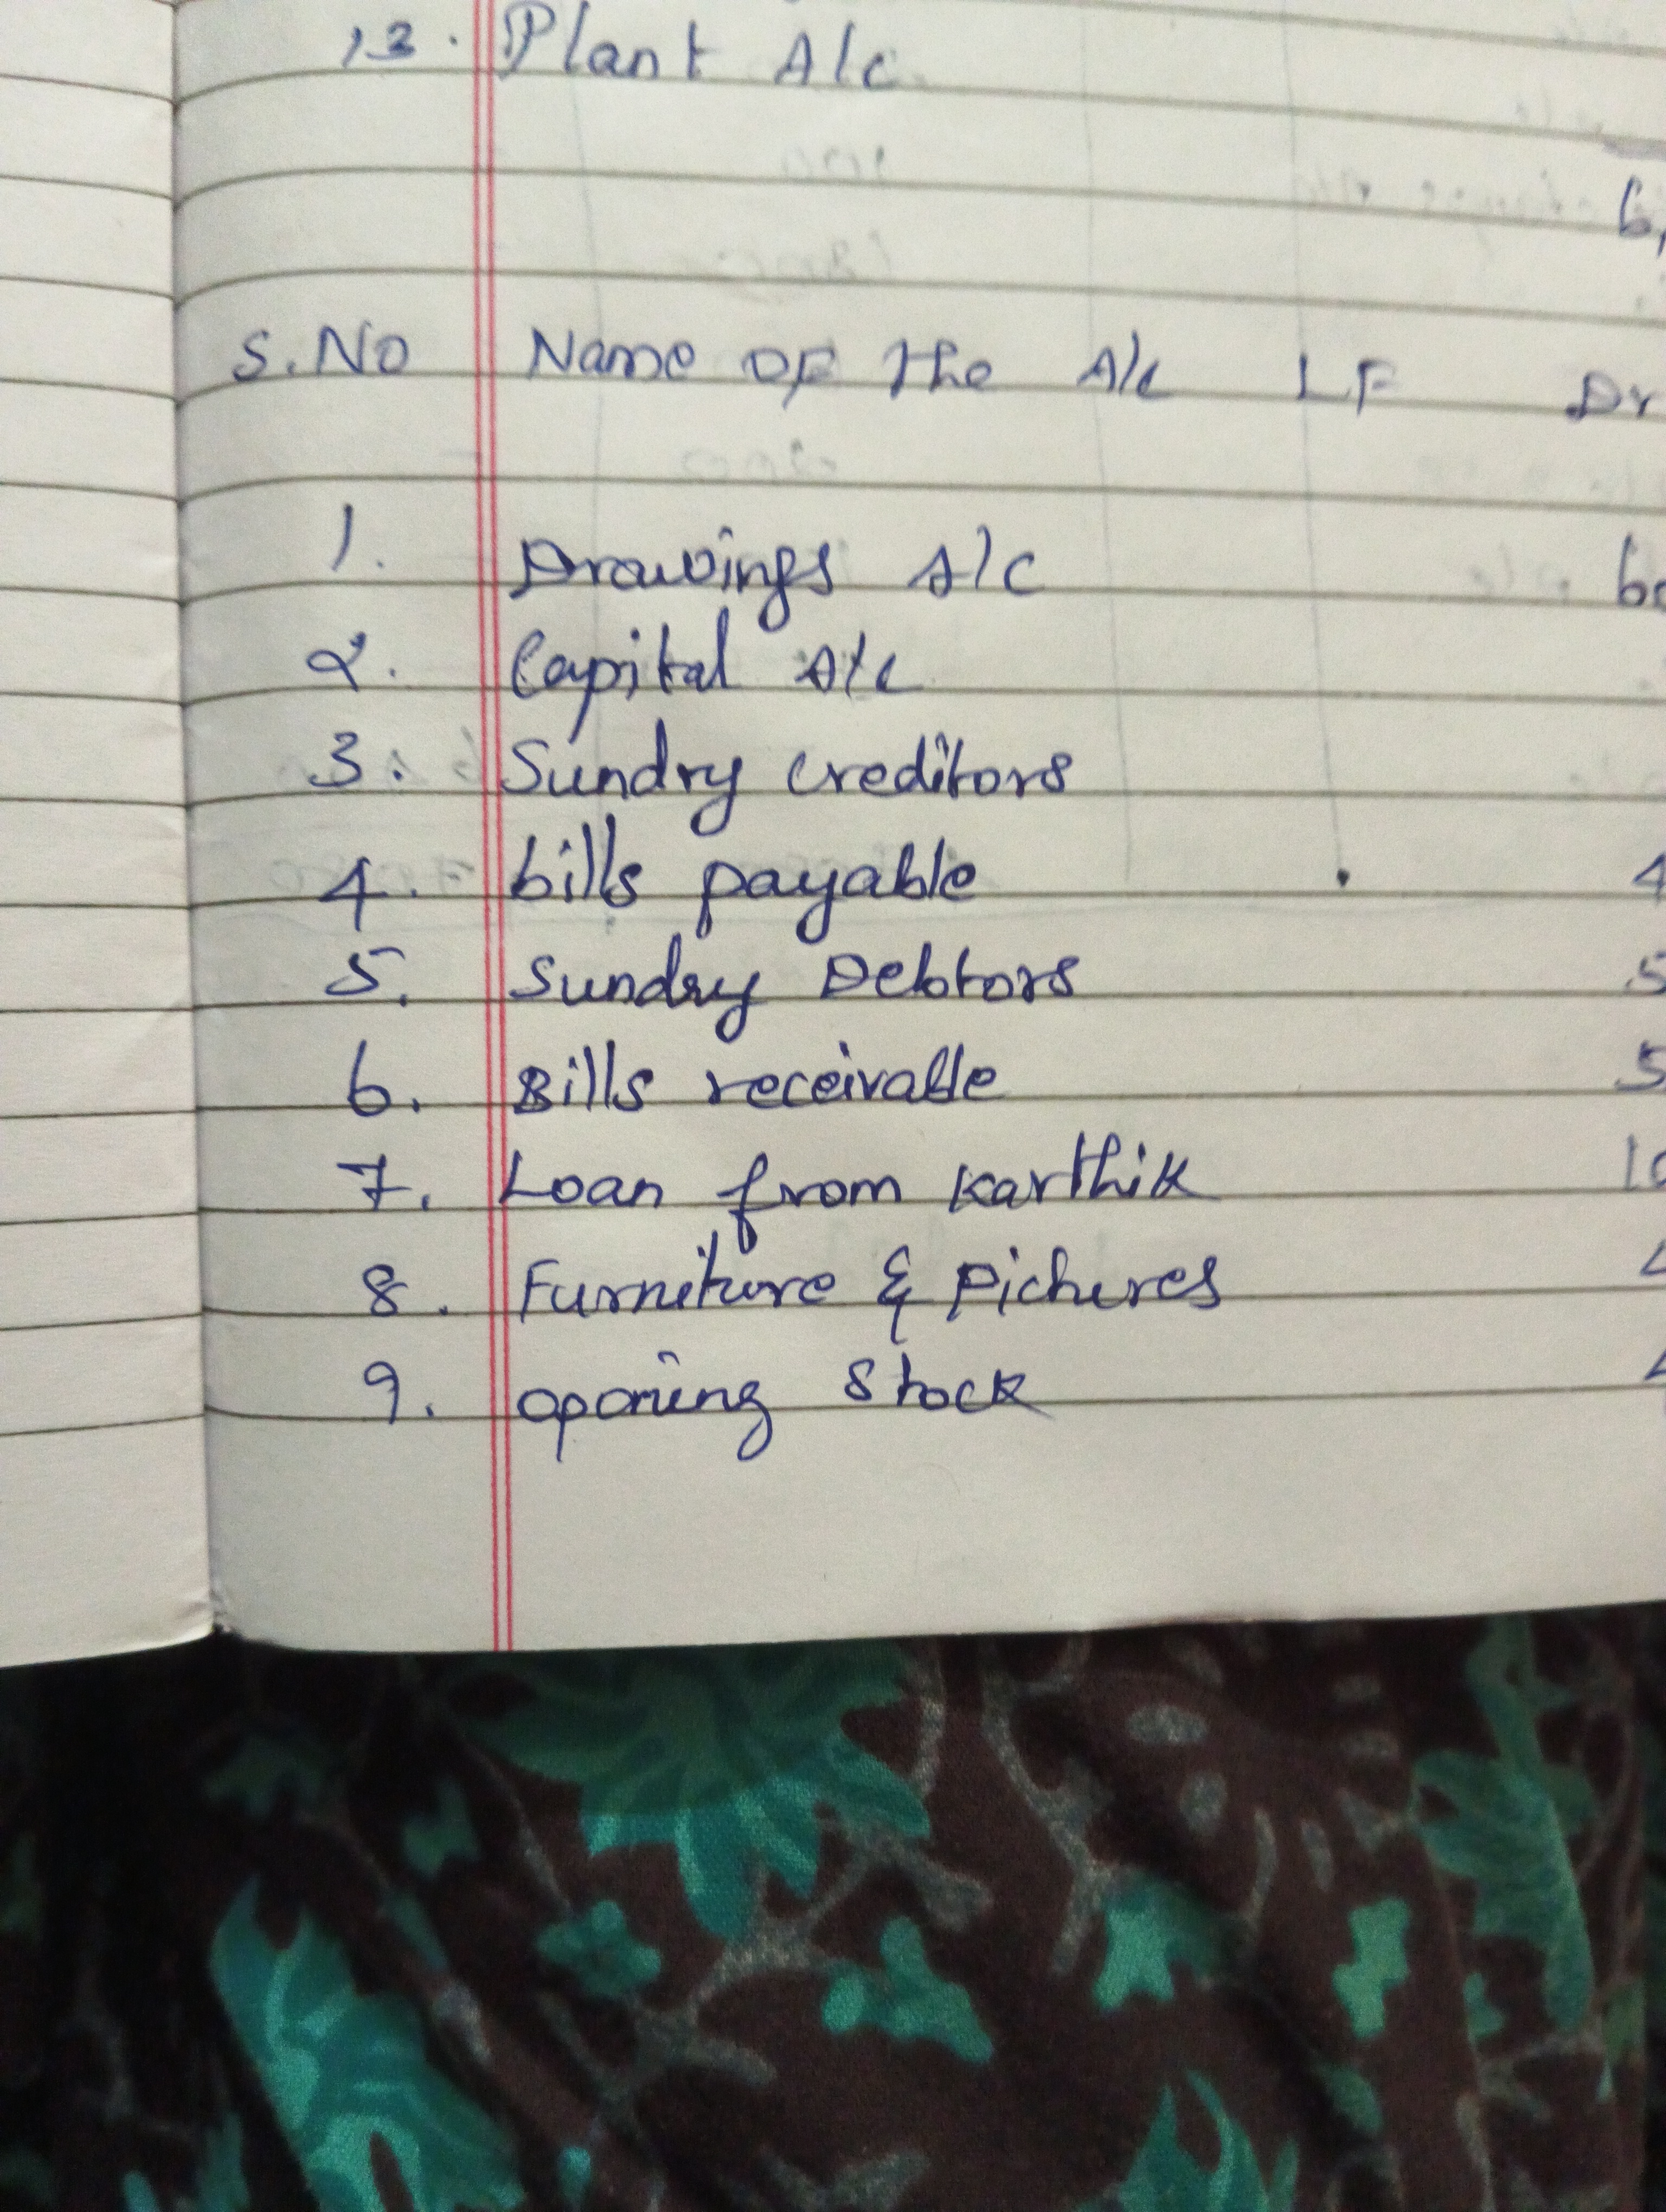 13. Plant A/c
6,
S.No Name OF the A/c LF Dr
1. Drawings A/c 60
2. Capital A/c
3. Sundry creditors
4. bills payable 4
5. Sundry Debtors 5
6. Bills receivable 5
7. Loan from Karthik 10
8. Furniture & Pichures 4
9. opening Stock 4